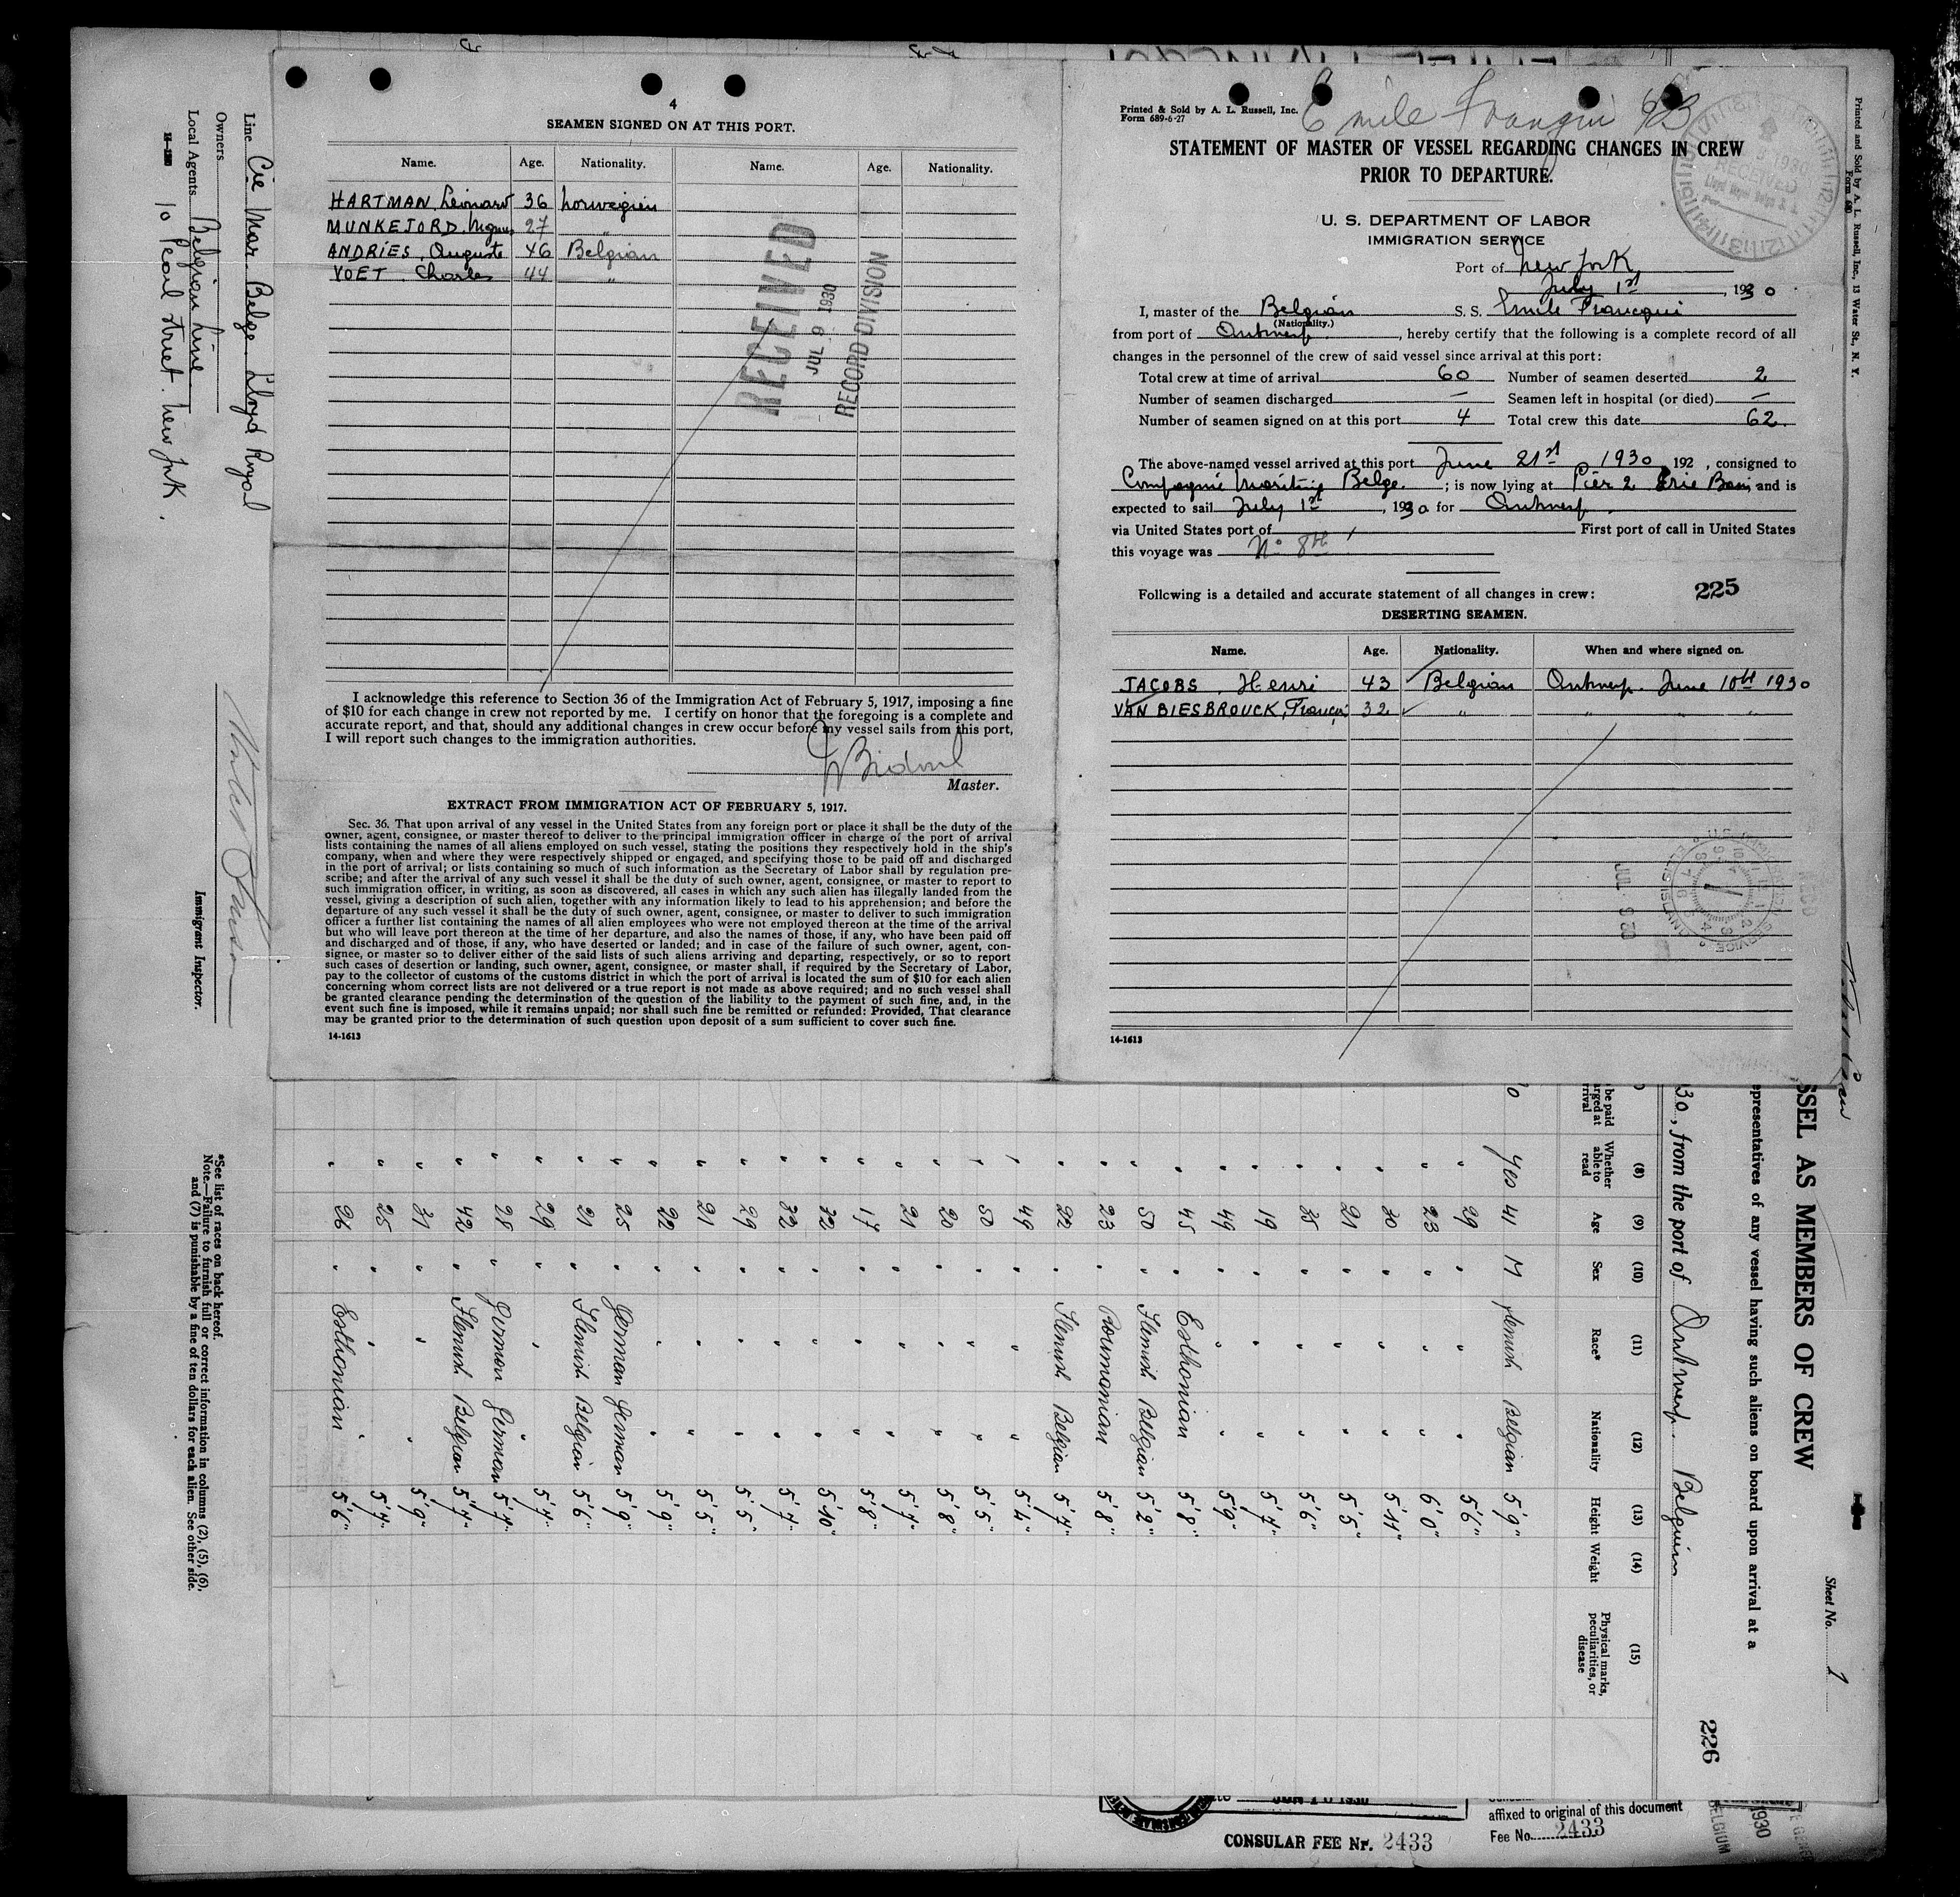 4
SEAMEN SIGNED ON AT THIS PORT.
Name. Age. Nationality. Name. Age. Nationality.
HARTMAN, Leonard 36 Norwegien
MUNKEJORD, Magnus 27 "
ANDRIES, Auguste 46 Belgian
VOET, Charles 44 "
RECEIVED
JUL 9 1930
RECORD DIVISION
I acknowledge this reference to Section 36 of the Immigration Act of February 5, 1917, imposing a fine
of $10 for each change in crew not reported by me. I certify on honor that the foregoing is a complete and
accurate report, and that, should any additional changes in crew occur before my vessel sails from this port,
I will report such changes to the immigration authorities.
Master.
EXTRACT FROM IMMIGRATION ACT OF FEBRUARY 5, 1917.
Sec. 36. That upon arrival of any vessel in the United States from any foreign port or place it shall be the duty of the
owner, agent, consignee, or master thereof to deliver to the principal immigration officer in charge of the port of arrival
lists containing the names of all aliens employed on such vessel, stating the positions they respectively hold in the ship's
company, when and where they were respectively shipped or engaged, and specifying those to be paid off and discharged
in the port of arrival; or lists containing so much of such information as the Secretary of Labor shall by regulation pre-
scribe; and after the arrival of any such vessel it shall be the duty of such owner, agent, consignee, or master to report to
such immigration officer, in writing, as soon as discovered, all cases in which any such alien has illegally landed from the
vessel, giving a description of such alien, together with any information likely to lead to his apprehension; and before the
departure of any such vessel it shall be the duty of such owner, agent, consignee, or master to deliver to such immigration
officer a further list containing the names of all alien employees who were not employed thereon at the time of the arrival
but who will leave port thereon at the time of her departure, and also the names of those, if any, who have been paid off
and discharged and of those, if any, who have deserted or landed; and in case of the failure of such owner, agent, con-
signee, or master so to deliver either of the said lists of such aliens arriving and departing, respectively, or so to report
such cases of desertion or landing, such owner, agent, consignee, or master shall, if required by the Secretary of Labor,
pay to the collector of customs of the customs district in which the port of arrival is located the sum of $10 for each alien
concerning whom correct lists are not delivered or a true report is not made as above required; and no such vessel shall
be granted clearance pending the determination of the question of the liability to the payment of such fine, and, in the
event such fine is imposed, while it remains unpaid; nor shall such fine be remitted or refunded: Provided, That clearance
may be granted prior to the determination of such question upon deposit of a sum sufficient to cover such fine.
14-1613
Printed & Sold by A. L. Russell, Inc.
Form 689-6-27
Emile Franqui
STATEMENT OF MASTER OF VESSEL REGARDING CHANGES IN CREW
PRIOR TO DEPARTURE.
U. S. DEPARTMENT OF LABOR
IMMIGRATION SERVICE
Port of New York
July 1st, 1930
I, master of the Belgian S. S. Emile Francqui
(Nationality.)
from port of Antwerp, hereby certify that the following is a complete record of all
changes in the personnel of the crew of said vessel since arrival at this port:
Total crew at time of arrival 60 Number of seamen deserted 2
Number of seamen discharged — Seamen left in hospital (or died) —
Number of seamen signed on at this port 4 Total crew this date 62.
The above-named vessel arrived at this port June 21st 1930, 192 , consigned to
Compagnie Maritime Belge. ; is now lying at Pier 2 Erie Basin, and is
expected to sail July 1st, 1930 for Antwerp.
via United States port of First port of call in United States
this voyage was No 8th
Following is a detailed and accurate statement of all changes in crew: 225
DESERTING SEAMEN.
Name. Age. Nationality. When and where signed on.
JACOBS, Henri 43 Belgian Antwerp. June 10th 1930
VAN BIESBROUCK, François 32 " " " "
14-1613
Printed and Sold by A. L. Russell, Inc., 13 Water St., N. Y.
Form 680
Line Cie Mar. Belge. Lloyd Royal
Owners
Local Agents Belgian Line
10 Pearl Street. New York.
Immigrant Inspector.
*See list of races on back hereof.
Note.—Failure to furnish full or correct information in columns (2), (5), (6),
and (7) is punishable by a fine of ten dollars for each alien. See other side.
Sheet No. 1
SSEL AS MEMBERS OF CREW
epresentatives of any vessel having such aliens on board upon arrival at a
30, from the port of Antwerp. Belgium
226
(8) (9) (10) (11) (12) (13) (14) (15)
Whether able to read Age Sex Race* Nationality Height Weight Physical marks, peculiarities, or disease
yes 41 M Flemish Belgian 5'9"
" 29 " " " 5'6"
" 23 " " " 6'0"
" 30 " " " 5'11"
" 21 " " " 5'5"
" 35 " " " 5'6"
" 19 " " " 5'7"
" 49 " " " 5'9"
" 45 " Esthonian 5'8"
" 50 " Flemish Belgian 5'2"
" 23 " Roumanian 5'8"
" 22 " Flemish Belgian 5'7"
" 49 " " " 5'4"
" 50 " " " 5'5"
" 20 " " " 5'8"
" 21 " " " 5'7"
" 17 " " " 5'8"
" 32 " " " 5'10"
" 32 " " " 5'7"
" 29 " " " 5'5"
" 21 " " " 5'5"
" 22 " " " 5'9"
" 25 " German German 5'9"
" 21 " Flemish Belgian 5'6"
" 29 " " " 5'7"
" 28 " German German 5'7"
" 42 " Flemish Belgian 5'7"
" 31 " " " 5'9"
" 25 " " " 5'7"
" 26 " Esthonian 5'6"
CONSULAR FEE Nr. 2433
affixed to original of this document
Fee No. 2433